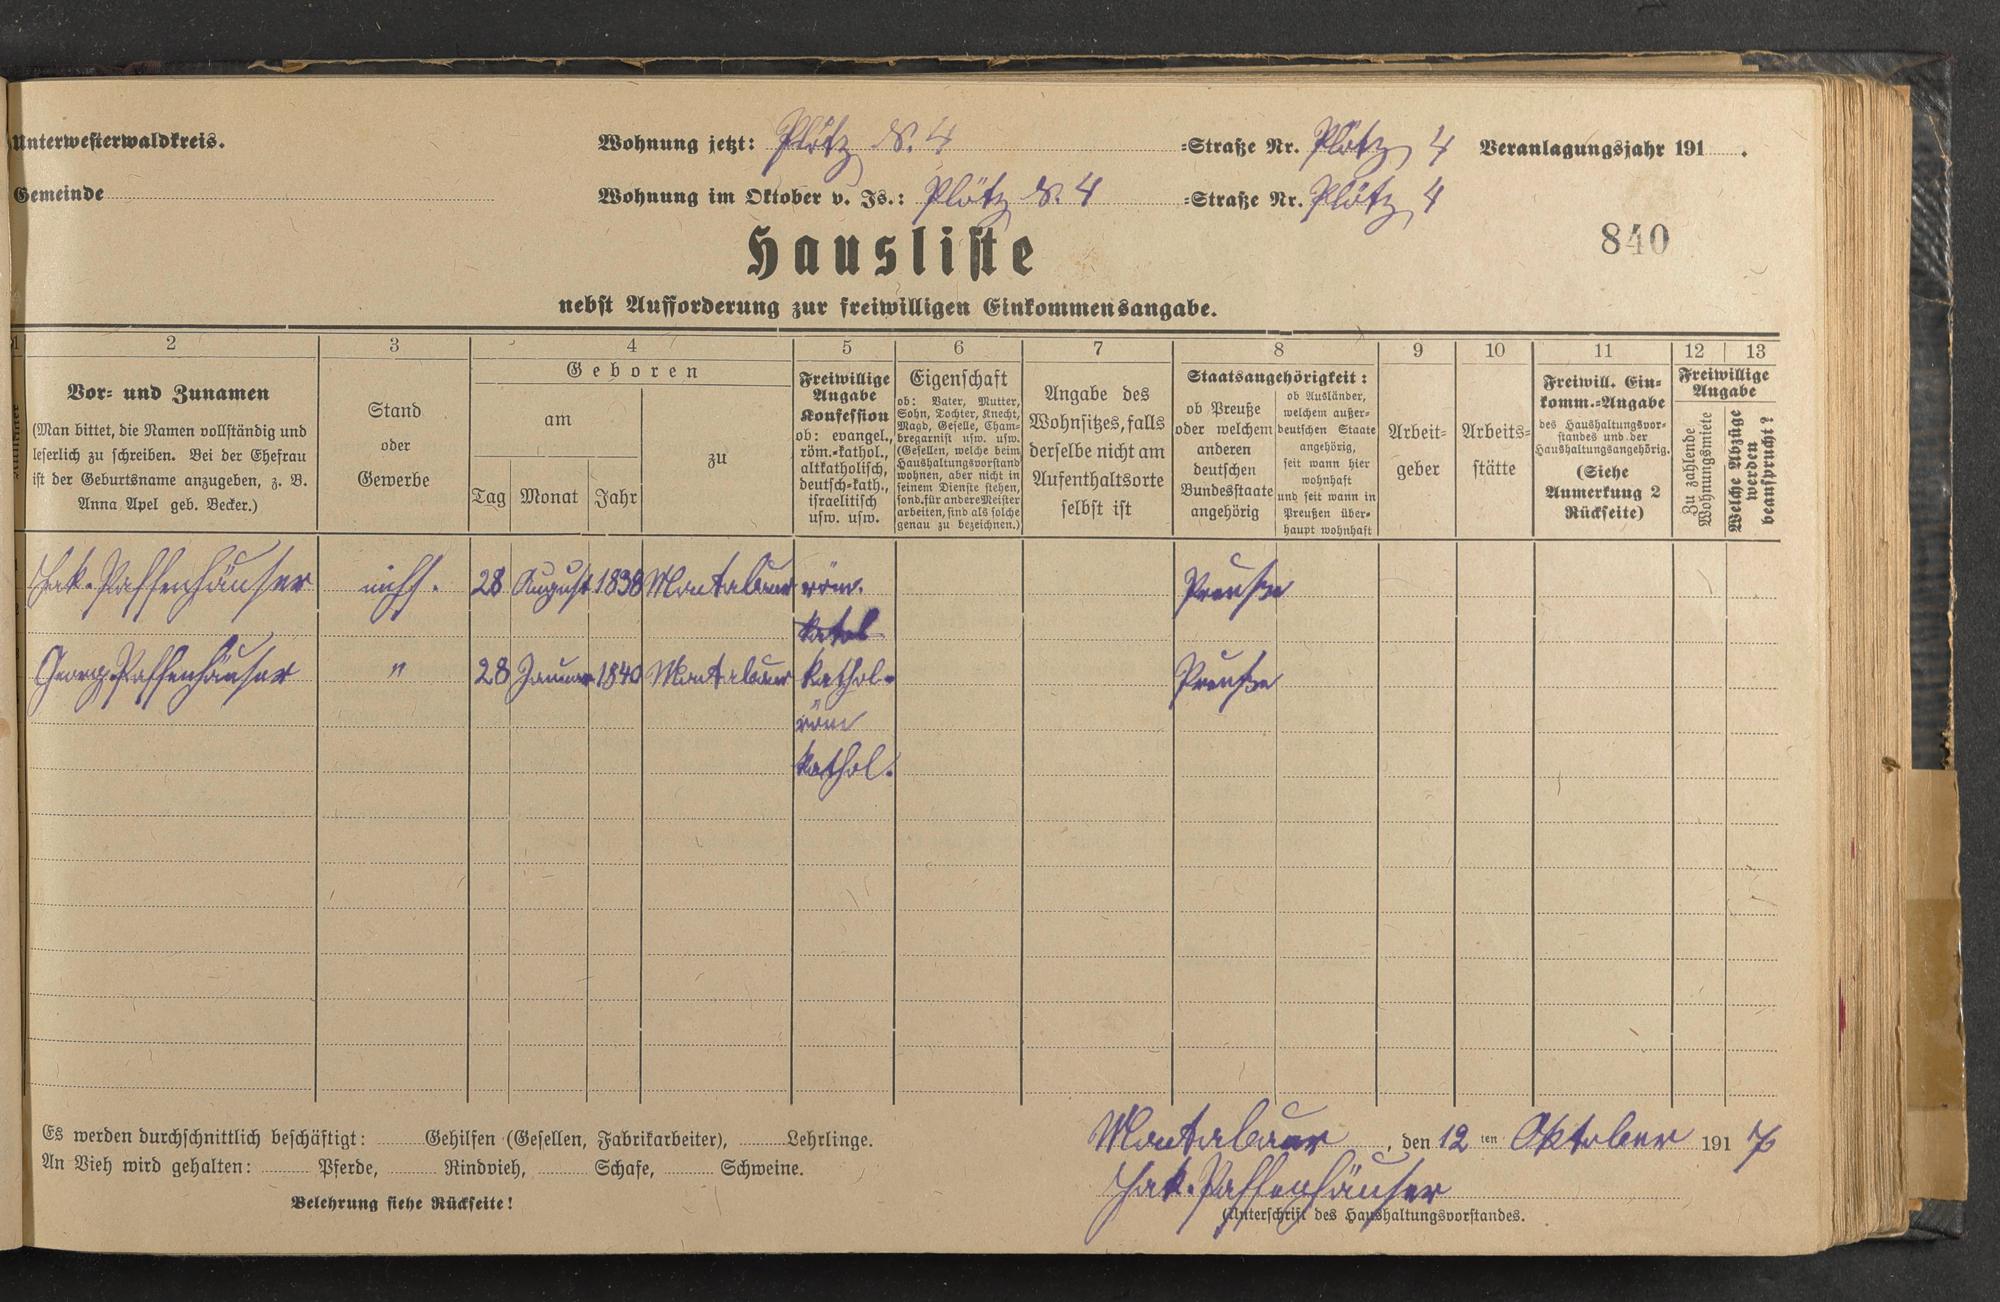 Unterwesterwaldkreis.
Wohnung jetzt: Plötz N. 4 =Straße Nr. Plötz 4 Veranlagungsjahr 191 .
Gemeinde
Wohnung im Oktober v. Js.: Plötz N. 4 =Straße Nr. Plötz 4
840
Hausliste
nebst Aufforderung zur freiwilligen Einkommensangabe.
1 2 3 4 5 6 7 8 9 10 11 12 13
Vor= und Zunamen
(Man bittet, die Namen vollständig und
leserlich zu schreiben. Bei der Ehefrau
ist der Geburtsname anzugeben, z. B.
Anna Apel geb. Becker.)
Stand
oder
Gewerbe
Geboren
am
Tag Monat Jahr
zu
Freiwillige
Angabe
Konfession
ob: evangel.,
röm.=kathol.,
altkatholisch,
deutsch=kath.,
israelitisch
usw. usw.
Eigenschaft
ob: Vater, Mutter,
Sohn, Tochter, Knecht,
Magd, Geselle, Cham=
bregarnist usw. usw.
(Gesellen, welche beim
Haushaltungsvorstand
wohnen, aber nicht in
seinem Dienste stehen,
sond. für andere Meister
arbeiten, sind als solche
genau zu bezeichnen.)
Angabe des
Wohnsitzes, falls
derselbe nicht am
Aufenthaltsorte
selbst ist
Staatsangehörigkeit:
ob Preuße
oder welchem
anderen
deutschen
Bundesstaate
angehörig
ob Ausländer,
welchem außer=
deutschen Staate
angehörig,
seit wann hier
wohnhaft
und seit wann in
Preußen über=
haupt wohnhaft
Arbeit=
geber
Arbeits=
stätte
Freiwill. Ein=
komm.=Angabe
des Haushaltungsvor=
standes und der
Haushaltungsangehörig.
(Siehe
Anmerkung 2
Rückseite)
Freiwillige
Angabe
Zu zahlende
Wohnungsmiete
Welche Abzüge
werden
beansprucht?
Jak. Paffenhäuser nichts. 28 August 1838 Montabaur röm. Preuße
katol
Georg Paffenhäuser " 28 Januar 1840 Montabaur kathol. Preuße
röm
kathol.
Es werden durchschnittlich beschäftigt: Gehilfen (Gesellen, Fabrikarbeiter), Lehrlinge.
An Vieh wird gehalten: Pferde, Rindvieh, Schafe, Schweine.
Belehrung siehe Rückseite!
Montabaur, den 12 ten Oktober 191 7
Jak. Paffenhäuser
(Unterschrift des Haushaltungsvorstandes.